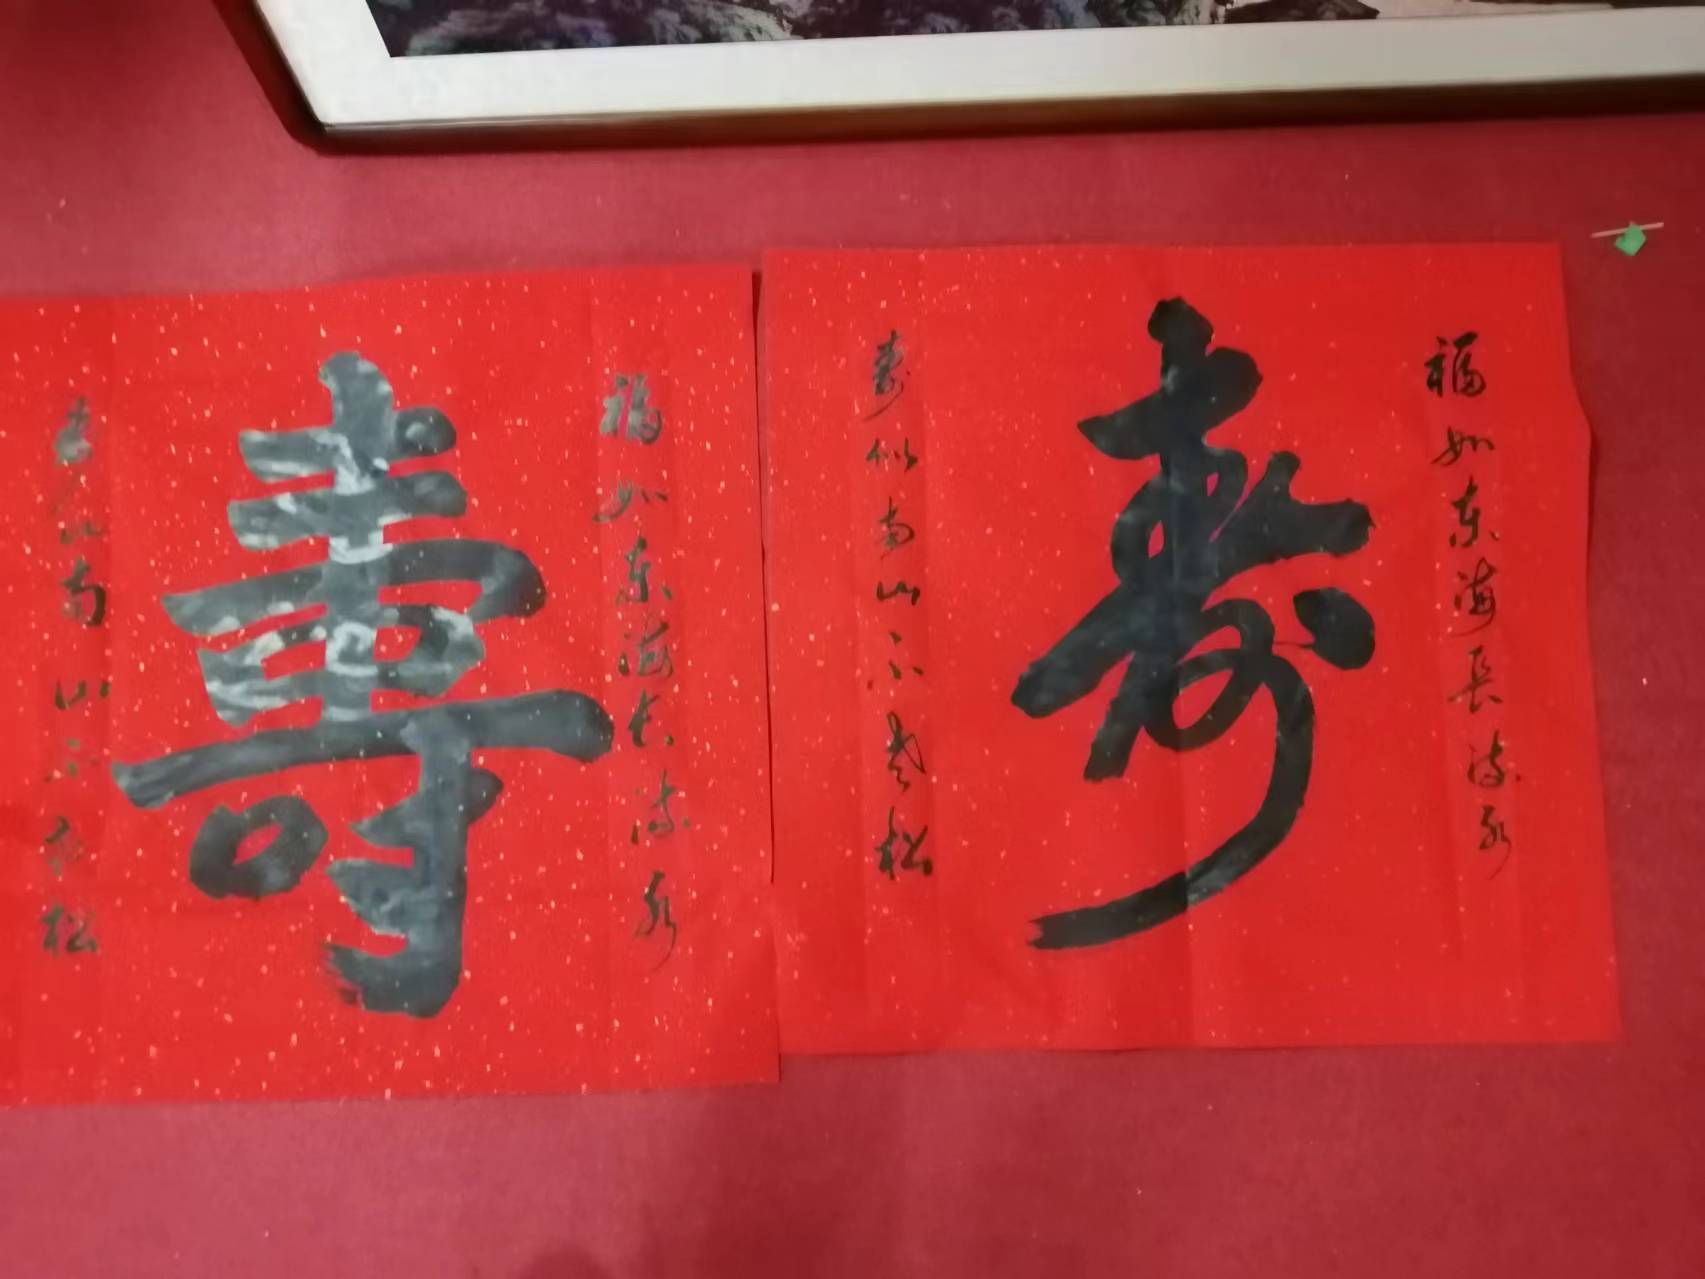 福如东海長流水
寿
寿似南山不老松
福如东海长流水
壽
寿似南山不老松